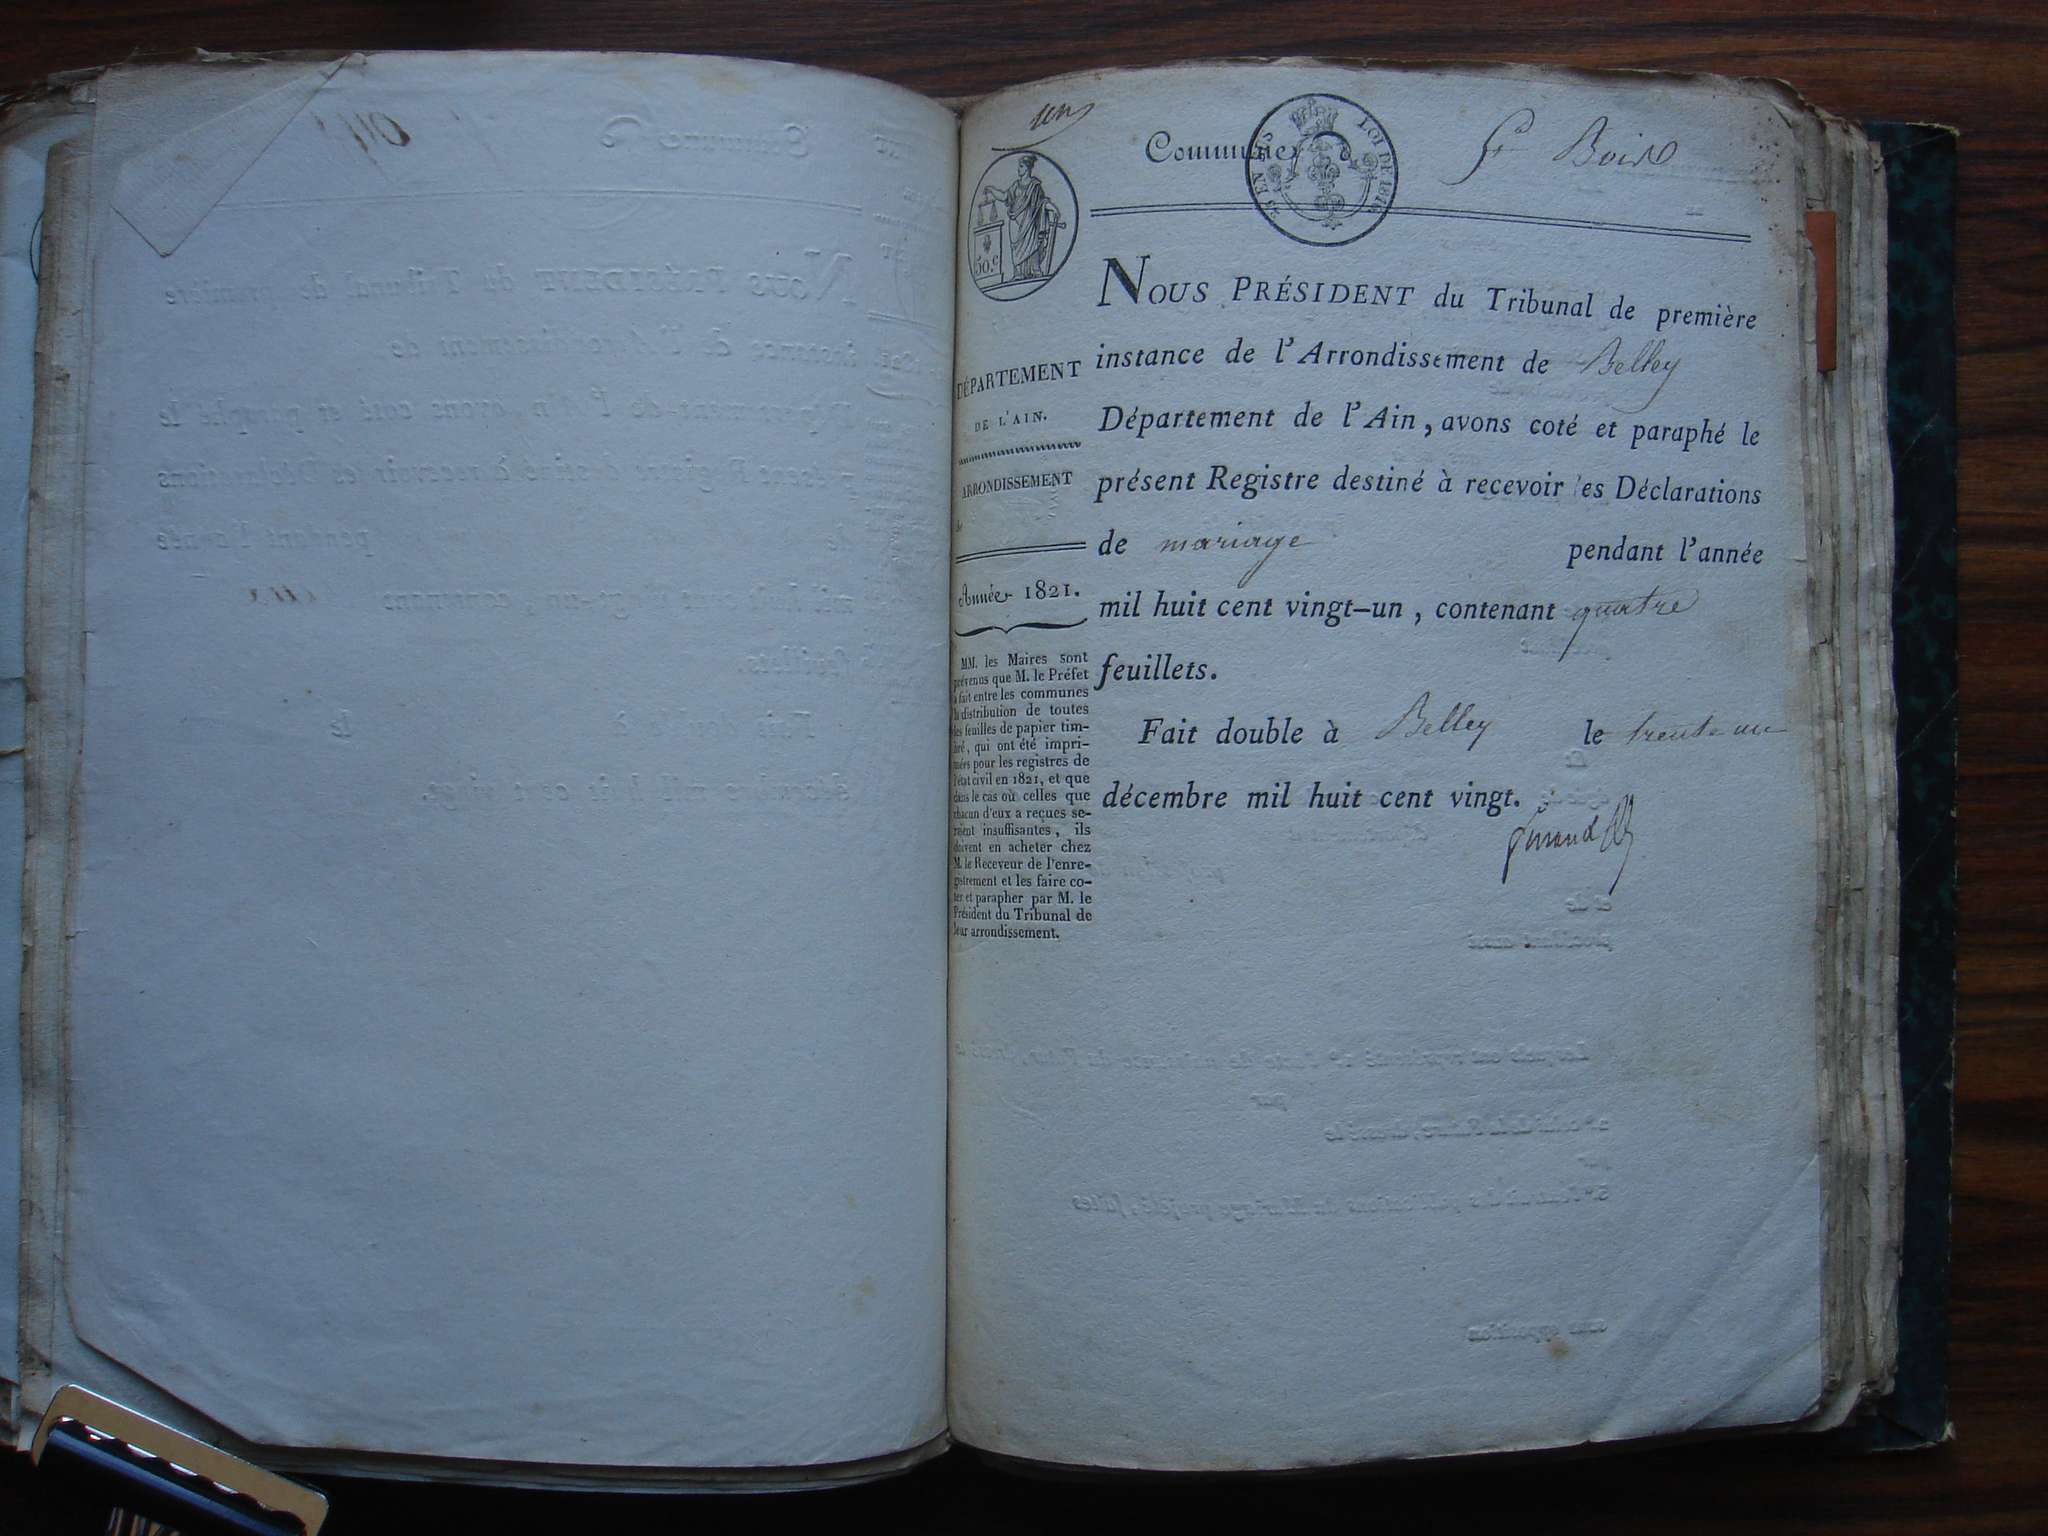 un
Commune St Bois
25 EN SUS LOI DE 1816
50.c
NOUS PRÉSIDENT du Tribunal de première
instance de l'Arrondissement de Belley
Département de l'Ain, avons coté et paraphé le
présent Registre destiné à recevoir les Déclarations
de mariage pendant l'année
mil huit cent vingt-un, contenant quatre
feuillets.
Fait double à Belley le trente un
décembre mil huit cent vingt.
DÉPARTEMENT
DE L'AIN.
ARRONDISSEMENT
de
Année 1821.
MM. les Maires sont
prévenus que M. le Préfet
a fait entre les communes
la distribution de toutes
les feuilles de papier tim-
bré, qui ont été impri-
mées pour les registres de
l'état civil en 1821, et que
dans le cas où celles que
chacun d'eux a reçues se-
raient insuffisantes, ils
doivent en acheter chez
M. le Receveur de l'enre-
gistrement et les faire co-
ter et parapher par M. le
Président du Tribunal de
leur arrondissement.